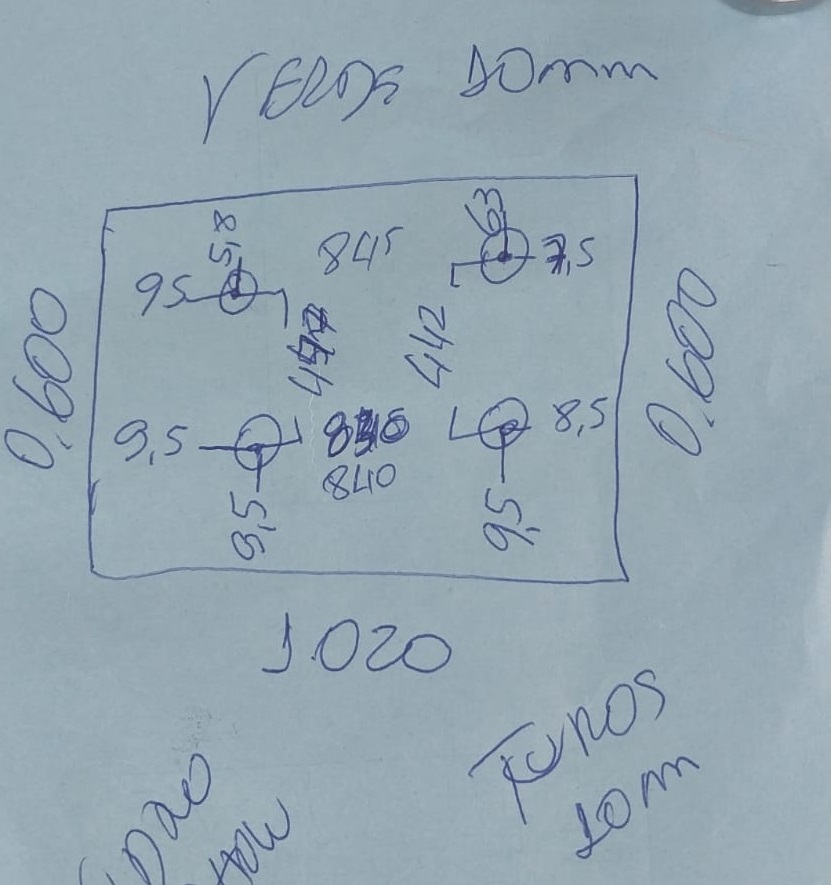 VERDE 10mm
5,8
845
63
95
7,5
0,600
442
0,600
9,5
840
8,5
9,5
9,5
1.020
FUROS
10m